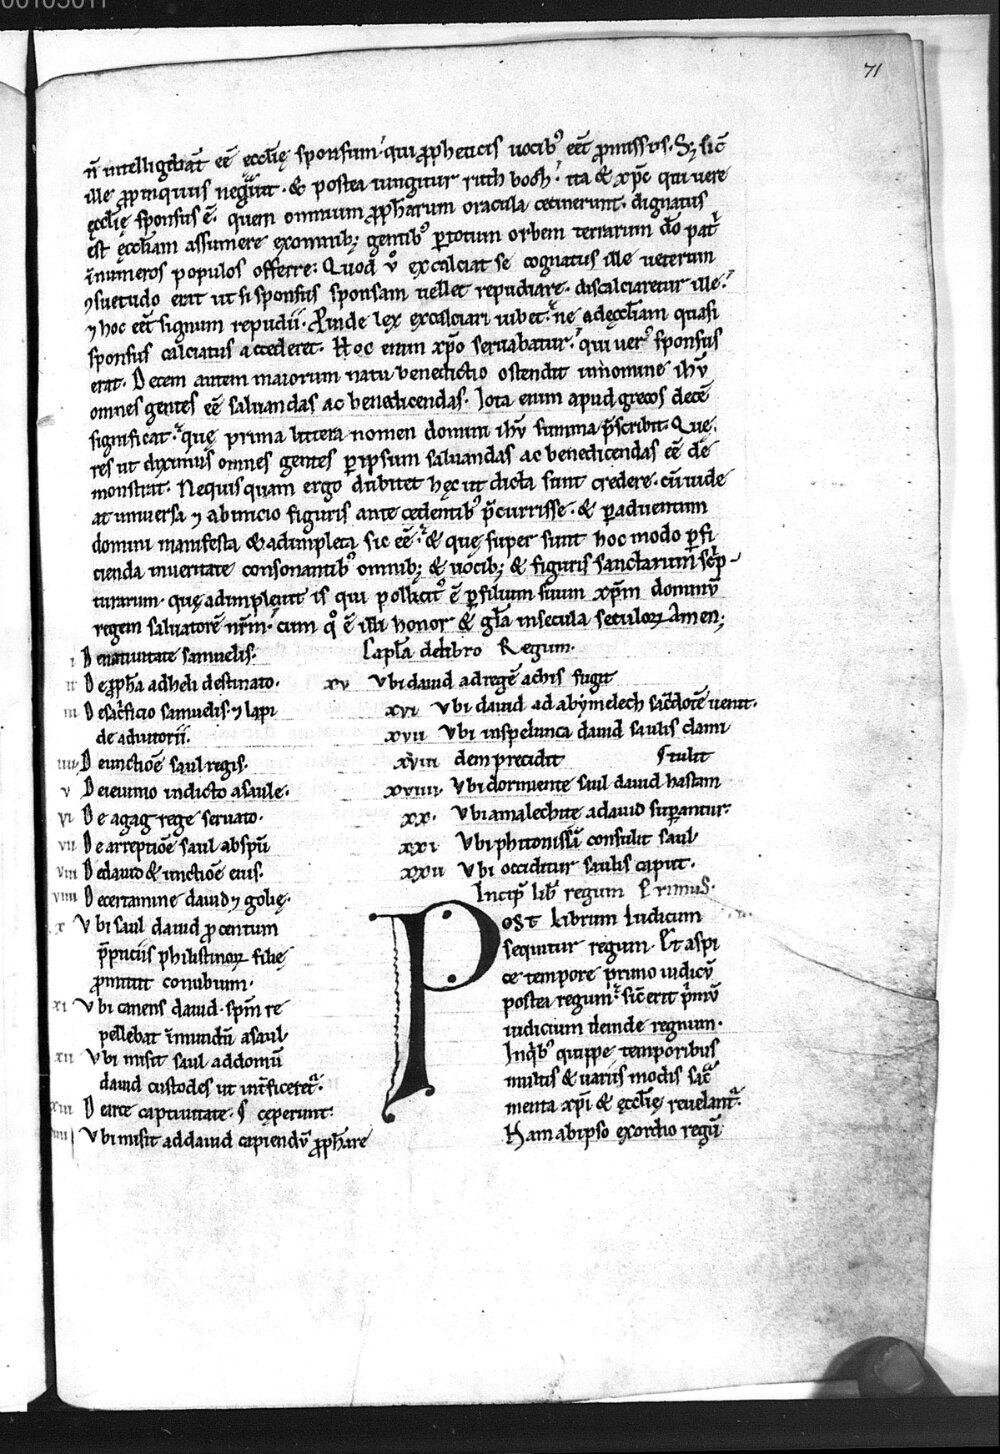 00105011
71
n̄ intelligebat̄ eē ecclīę sponsum qui ꝓpheticis uocibꝰ eēt ꝓmissus. Sꝫ sic̄
ille ꝓpinquus negauit. & postea iungitur ruth booh: ita & xp̄c qui uere
ęcclīę sponsus ē. quem omnium ꝓphetarum oracula cecinerunt. dignatus
est ęccl̄iam assumere exomnibꝫ gentibꝰ ꝑtotum orbem terrarum dō patͥ
īnumeros populos offerre: Quod ů excalciat se cognatus ille ueterum
ꝯsuetudo erat ut si sponsus sponsam uellet repudiare. discalciaretur ille.
⁊ hoc eēt signum repudii. Proinde lex excalciari iubet. ne adęccl̄iam quasi
sponsus calciatus accederet. Hoc enim xp̄o seruabatur. qui uerꝰ sponsus
erat. Decem autem maiorum natu benedictio ostendit innomine ih̄u
omnes gentes eē saluandas ac benedicendas. Iota enim apud grecos decē
significat. quę prima littera nomen domini ih̄u summa p̄scribit. Quę
res ut diximus omnes gentes ꝑipsum saluandas ac benedicendas eē de
monstrat. Nequisquam ergo dubitet hęc ut dicta sunt credere. cū uide
at uniuersa ⁊ abinicio figuris ante cedentibꝰ p̄currisse. & ꝑaduentum
domini manifesta & adimpleta sic eē. & quę super sunt hoc modo ꝑfi
cienda inueritate consonantibꝰ omnibꝫ & uocibꝫ & figuris sanctarum sc̄p
turarum. quę adimplebit is qui pollicitꝰ ē ꝑfilium suum xp̄m dominū
regem saluatorē nr̄m. cum qͦ ē illi honor & gl̄a insecula seculoꝝ Amen;
Capl̄a delibro Regum.
i Denatiuitate samuelis.
ii De ꝓph̄a adheli destinato.
iii Desac̄ficio samuelis. ⁊ lapi
de adiutorii.
iiii Deunctiōe saul regis.
v Deieiunio indicto asaule.
vi De agag rege seruato.
vii De arreptiōe saul abspū
viii Dedauid & unctiōe eius.
viiii Decertamine dauid ⁊ golię.
x Vbi saul dauid ꝓ centum
p̄puciis philistinoꝝ filię
ꝓmittit conubium.
xi Vbi canens dauid. spm̄ re
pellebat īmundū asaul
xii Vbi misit saul addomū
dauid custodes ut int̄ficeretͬ.
xiii Dearce captiuitate. ꝗ cęperunt.
Vbi misit addauid capiendū ꝓph̄are
xv Vbi dauid adregē achis fugit
xvi Vbi dauid ad abymelech sac̄dotē uenit.
xvii Vbi inspelunca dauid saulis clami
xviii dem precidit tulit
xviiii. Vbi dormiente saul dauid hastam
xx. Vbi amalechite adauid suꝑantur.
xxi Vbi phitonissā consulit saul
xxii Vbi occiditur saulis caput.
Incip̄ lib̄ regum Primus.
Post librum Iudicum
sequitur regum. Et aspi
ce tempore primo iudicū
postea regum. sic̄ erit p̄mū
iudicium deinde regnum.
Inqͥbꝰ quippe temporibus
multis & uariis modis sac̄
menta xp̄i & ęcclīę reuelantͬ.
Nam abipso exordio regū